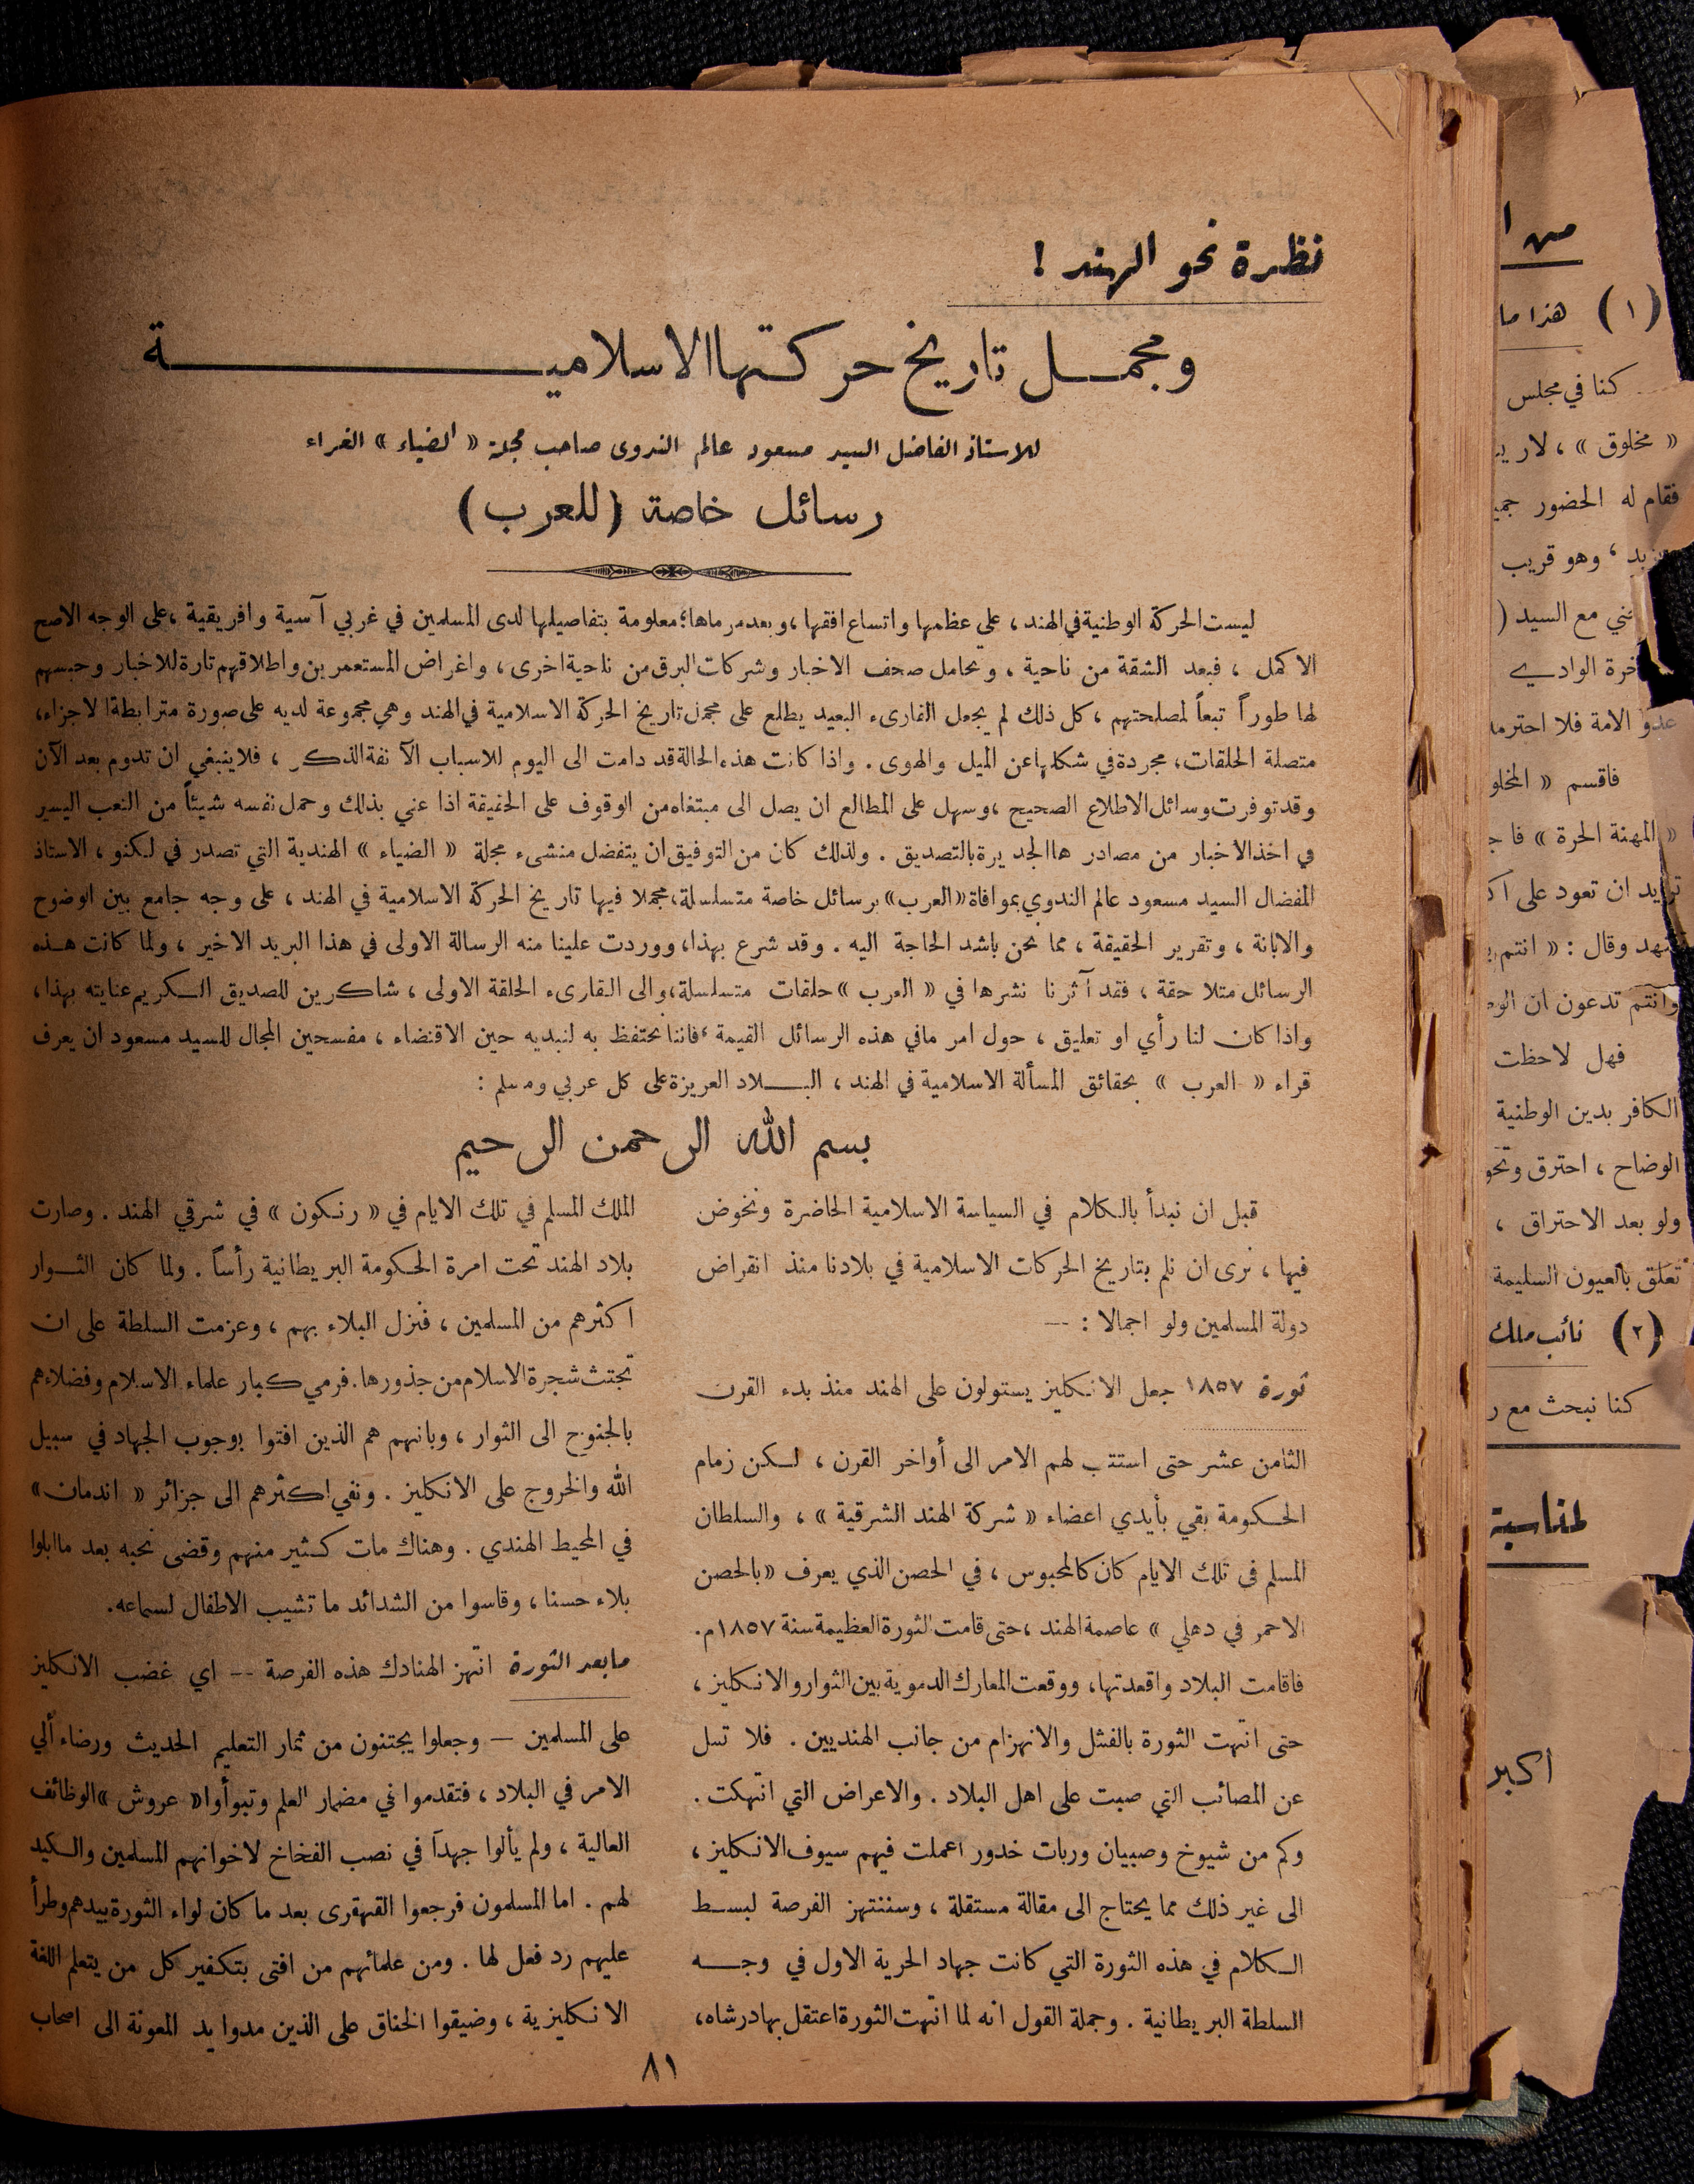 نظرة نحو الهند !
ومجمل تاريخ حركتها الاسلامية
للاستاذ الفاضل السيد مسعود عالم الندوى صاحب مجلة « الضياء » الغراء
رسائل خاصة (للعرب)
ليست الحركة الوطنية في الهند ، على عظمها واتساع افقها ، وبعد مرماها ؛ معلومة بتفاصيلها لدى المسلمين في غربي آسية وافريقية ، على الوجه الاصح
الاكمل ، فبعد الشقة من ناحية ، وتحامل صحف الاخبار وشركات البرق من ناحية اخرى ، واغراض المستعمرين واطلاقهم تارة للاخبار وحبسهم
لها طوراً تبعاً لمصلحتهم ، كل ذلك لم يجعل القارىء البعيد يطلع على مجمل تاريخ الحركة الاسلامية في الهند وهي مجموعة لديه على صورة مترابطة الاجزاء ،
متصلة الحلقات ، مجردة في شكلها عن الميل والهوى . واذا كانت هذه الحالة قد دامت الى اليوم للاسباب الآنفة الذكر ، فلا ينبغي ان تدوم بعد الآن
وقد توفرت وسائل الاطلاع الصحيح ، وسهل على المطالع ان يصل الى مبتغاه من الوقوف على الحقيقة اذا عني بذلك وحمل نفسه شيئاً من التعب اليسير
في اخذ الاخبار من مصادرها الجديرة بالتصديق . ولذلك كان من التوفيق ان يتفضل منشىء مجلة « الضياء » الهندية التي تصدر في لكنو ، الاستاذ
المفضال السيد مسعود عالم الندوي بموافاة « العرب » برسائل خاصة متسلسلة ، مجملا فيها تاريخ الحركة الاسلامية في الهند ، على وجه جامع بين الوضوح
والابانة ، وتقرير الحقيقة ، مما نحن باشد الحاجة اليه . وقد شرع بهذا ، ووردت علينا منه الرسالة الاولى في هذا البريد الاخير ، ولما كانت هذه
الرسائل متلاحقة ، فقد آثرنا نشرها في « العرب » حلقات متسلسلة ، والى القارىء الحلقة الاولى ، شاكرين للصديق الكريم عنايته بهذا ،
واذا كان لنا رأي او تعليق ، حول امر مافي هذه الرسائل القيمة ، فاننا نحتفظ به لنبديه حين الاقتضاء ، مفسحين المجال للسيد مسعود ان يعرف
قراء « العرب » بحقائق المسألة الاسلامية في الهند ، البلاد العزيزة على كل عربي ومسلم :
بسم الله الرحمن الرحيم
قبل ان نبدأ بالكلام في السياسة الاسلامية الحاضرة ونخوض
فيها ، نرى ان نلم بتاريخ الحركات الاسلامية في بلادنا منذ انقراض
دولة المسلمين ولو اجمالا : —
ثورة ١٨٥٧ جعل الانكليز يستولون على الهند منذ بدء القرن
الثامن عشر حتى استتب لهم الامر الى أواخر القرن ، لكن زمام
الحكومة بقي بأيدي اعضاء « شركة الهند الشرقية » ، والسلطان
المسلم في تلك الايام كان كالمحبوس ، في الحصن الذي يعرف « بالحصن
الاحمر في دهلي » عاصمة الهند ، حتى قامت الثورة العظيمة سنة ١٨٥٧م.
فاقامت البلاد واقعدتها ، ووقعت المعارك الدموية بين الثوار والانكليز ،
حتى انتهت الثورة بالفشل والانهزام من جانب الهنديين . فلا تسل
عن المصائب التي صبت على اهل البلاد . والاعراض التي انتهكت .
وكم من شيوخ وصبيان وربات خدور اعملت فيهم سيوف الانكليز ،
الى غير ذلك مما يحتاج الى مقالة مستقلة ، وسننتهز الفرصة لبسط
الكلام في هذه الثورة التي كانت جهاد الحرية الاول في وجه
السلطة البريطانية . وجملة القول انه لما انتهت الثورة اعتقل بهادرشاه ،
الملك المسلم في تلك الايام في « رنكون » في شرقي الهند . وصارت
بلاد الهند تحت امرة الحكومة البريطانية رأساً . ولما كان الثوار
اكثرهم من المسلمين ، فنزل البلاء بهم ، وعزمت السلطة على ان
تجتث شجرة الاسلام من جذورها . فرمي كبار علماء الاسلام وفضلاءهم
بالجنوح الى الثوار ، وبانهم هم الذين افتوا بوجوب الجهاد في سبيل
الله والخروج على الانكليز . ونفي اكثرهم الى جزائر « اندمان »
في المحيط الهندي . وهناك مات كثير منهم وقضى نحبه بعد ما ابلوا
بلاء حسنا ، وقاسوا من الشدائد ما تشيب الاطفال لسماعه.
مابعد الثورة انتهز الهنادك هذه الفرصة -- اي غضب الانكليز
على المسلمين — وجعلوا يجتنون من ثمار التعليم الحديث ورضاء ألي
الامر في البلاد ، فتقدموا في مضمار العلم وتبوأوا « عروش » الوظائف
العالية ، ولم يألوا جهداً في نصب الفخاخ لاخوانهم المسلمين والكيد
لهم . اما المسلمون فرجعوا القهقرى بعد ما كان لواء الثورة بيدهم وطرأ
عليهم رد فعل لها . ومن علمائهم من افتى بتكفير كل من يتعلم اللغة
الانكليزية ، وضيقوا الخناق على الذين مدوا يد المعونة الى اصحاب
٨١
من ا
(١) هذا ما
كنا في مجلس
« مخلوق » ، لا ري
فقام له الحضور جمي
، وهو قريب
عني مع السيد (
خرة الوادي
عدو الامة فلا احترما
فاقسم « المخلو
« المهنة الحرة » فا ج
تريد ان تعود على اك
وقال : « انتم
وانتم تدعون ان الو
فهل لاحظت
الكافر بدين الوطنية
الوضاح ، احترق وتحو
ولو بعد الاحتراق ،
تعلق بالعيون السليمة
(٢) نائب ملك
كنا نبحث مع ر
لمناسبة
اكبر